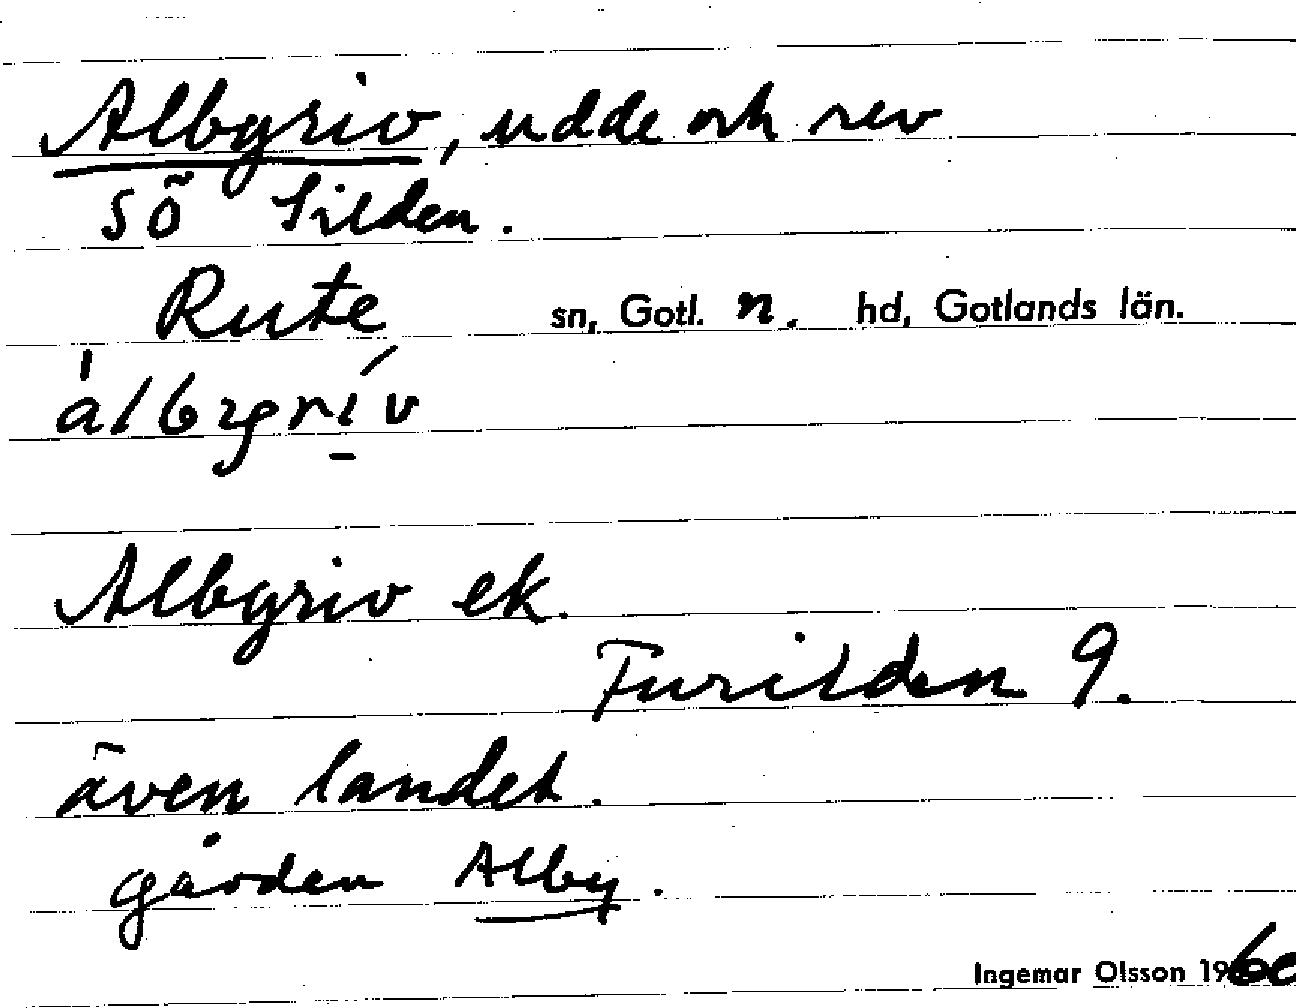 Albgriv, udde och rev
SÖ Silden.
Rute sn, Gotl. n. hd, Gotlands län.
Albgriv ek.
Furilden 9.
även landet.
gården Alby.
Ingemar Olsson 1960